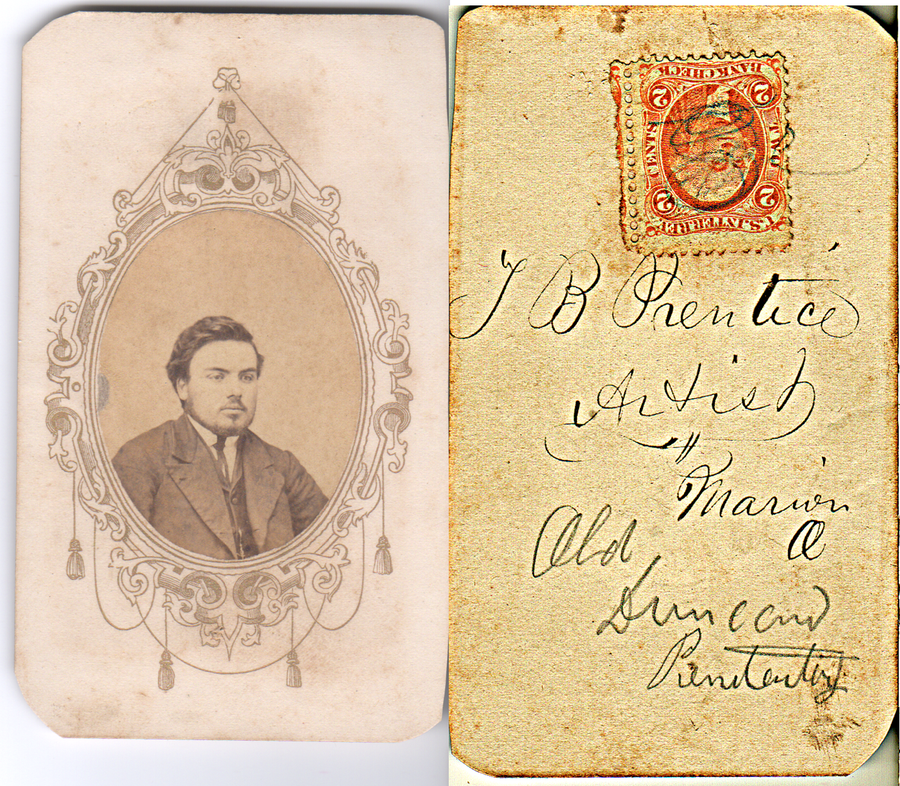 U.S. INTER. REV.
2 2
TWO CENTS
2 2
BANK CHECK
J B Prentice
Artist
"
Marion
O
Old
Duncand
Penitentiary